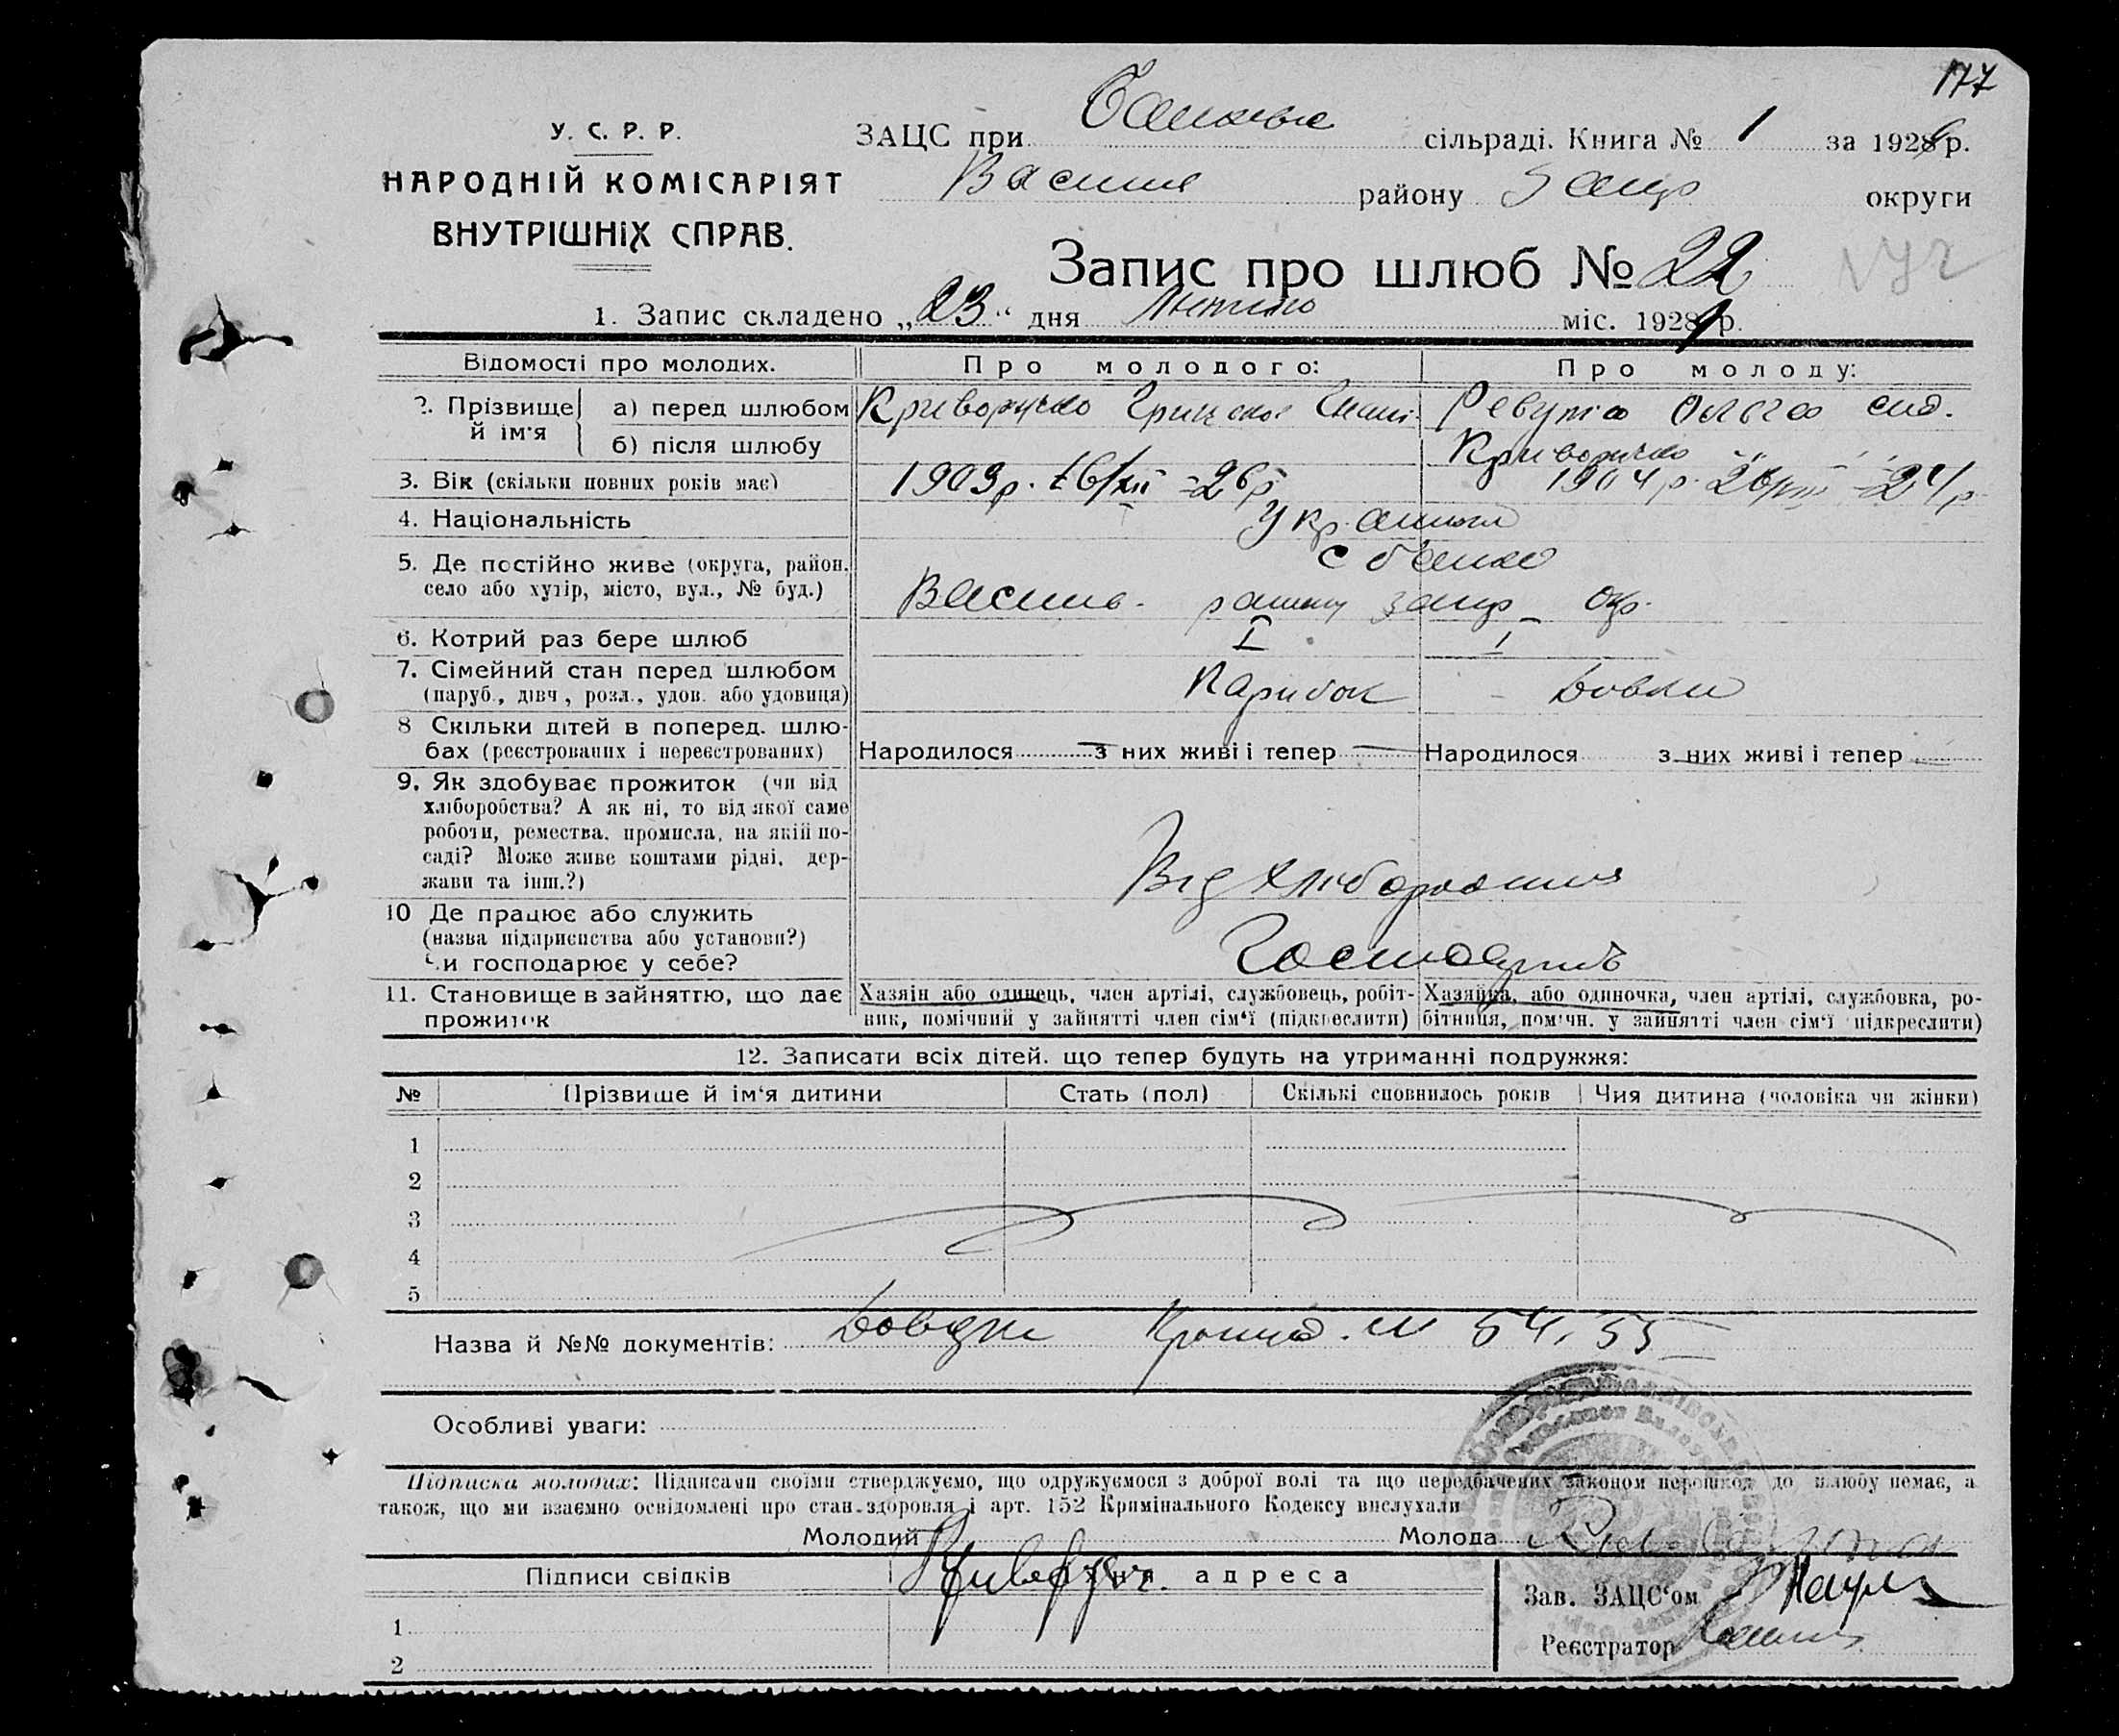 177
У. С. Р. Р.
НАРОДНІЙ КОМІСАРІЯТ
ВНУТРІШНІХ СПРАВ.
ЗАЦС при сільраді. Книга № 1 за 1929 р.
Василів району Запор округи
Запис про шлюб № 22
1. Запис складено „23“ дня Лютого міс. 1929 р.
Відомості про молодих.
Про молодого:
Про молоду:
2. Прізвище й ім'я
а) перед шлюбом
Криворучко Грицько
Ревута Ольга сид.
б) після шлюбу
Криворучко " "
3. Вік (скільки повних років має)
1903 р.
1904 р. =24 р
4. Національність
5. Де постійно живе (округа, район.
село або хутір, місто, вул., № буд.)
Василів. району запор окр.
6. Котрий раз бере шлюб
I
I
7. Сімейний стан перед шлюбом
(паруб., дівч., розл., удов. або удовиця)
Парубок
8 Скільки дітей в поперед. шлю-
бах (реєстрованих і нереєстрованих)
Народилося — з них живі і тепер —
Народилося з них живі і тепер —
9. Як здобуває прожиток (чи від
хліборобства? А як ні, то від якої саме
роботи, ремества, промисла, на якій по-
саді? Може живе коштами рідні, дер-
жави та інш.?)
Від хліборобства
10 Де працює або служить
(назва підприємства або установи?)
Чи господарює у себе?
11. Становище в зайняттю, що дає
прожиток
Хазяін або одинець, член артілі, службовець, робіт-
ник, помічний у зайнятті член сім'ї (підкреслити)
Хазяйка, або одиночка, член артілі, службовка, ро-
бітниця, помічн. у зайнятті член сім'ї підкреслити)
12. Записати всіх дітей. що тепер будуть на утриманні подружжя:
№ Прізвише й ім'я дитини Стать (пол) Скількі сповнилось років Чия дитина (чоловіка чи жінки)
1
2
3
4
5
Назва й №№ документів: 54, 55
Особливі уваги:
Підписка молодих: Підписами своїми стверджуємо, що одружуємося з доброї волі та що передбачених законом перешкод до шлюбу немає, а
також, що ми взаємно освідомлені про стан здоровля і арт. 152 Кримінального Кодексу вислухали
Молодий
Молода
Підписи свідків
адреса
1
2
Зав. ЗАЦС'ом
Реєстратор